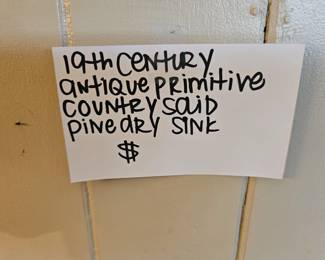 19th CENTURY
antique primitive
COUNTRY SOliD
PiNE DRY SiNK
$